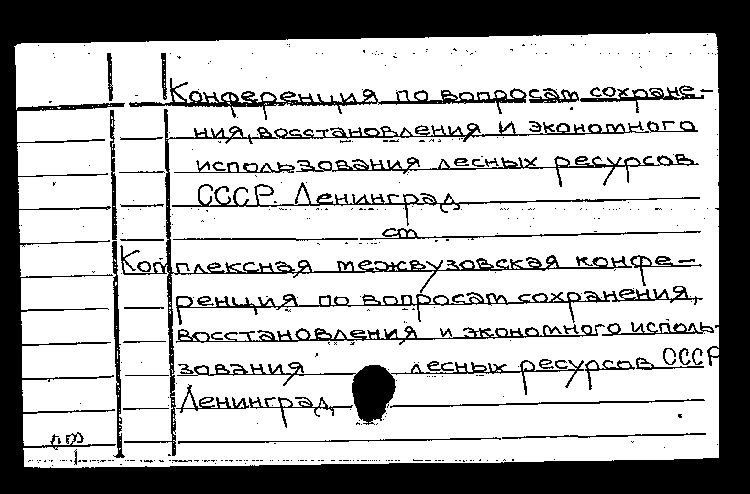 Конференция по вопросам сохране-
ния, восстановления и экономного
использования лесных ресурсов
СССР. Ленинград,
см
Комплексная межвузовская конфе-
ренция по вопросам сохранения,
восстановления и экономного исполь-
зования лесных ресурсов СССР
Ленинград,